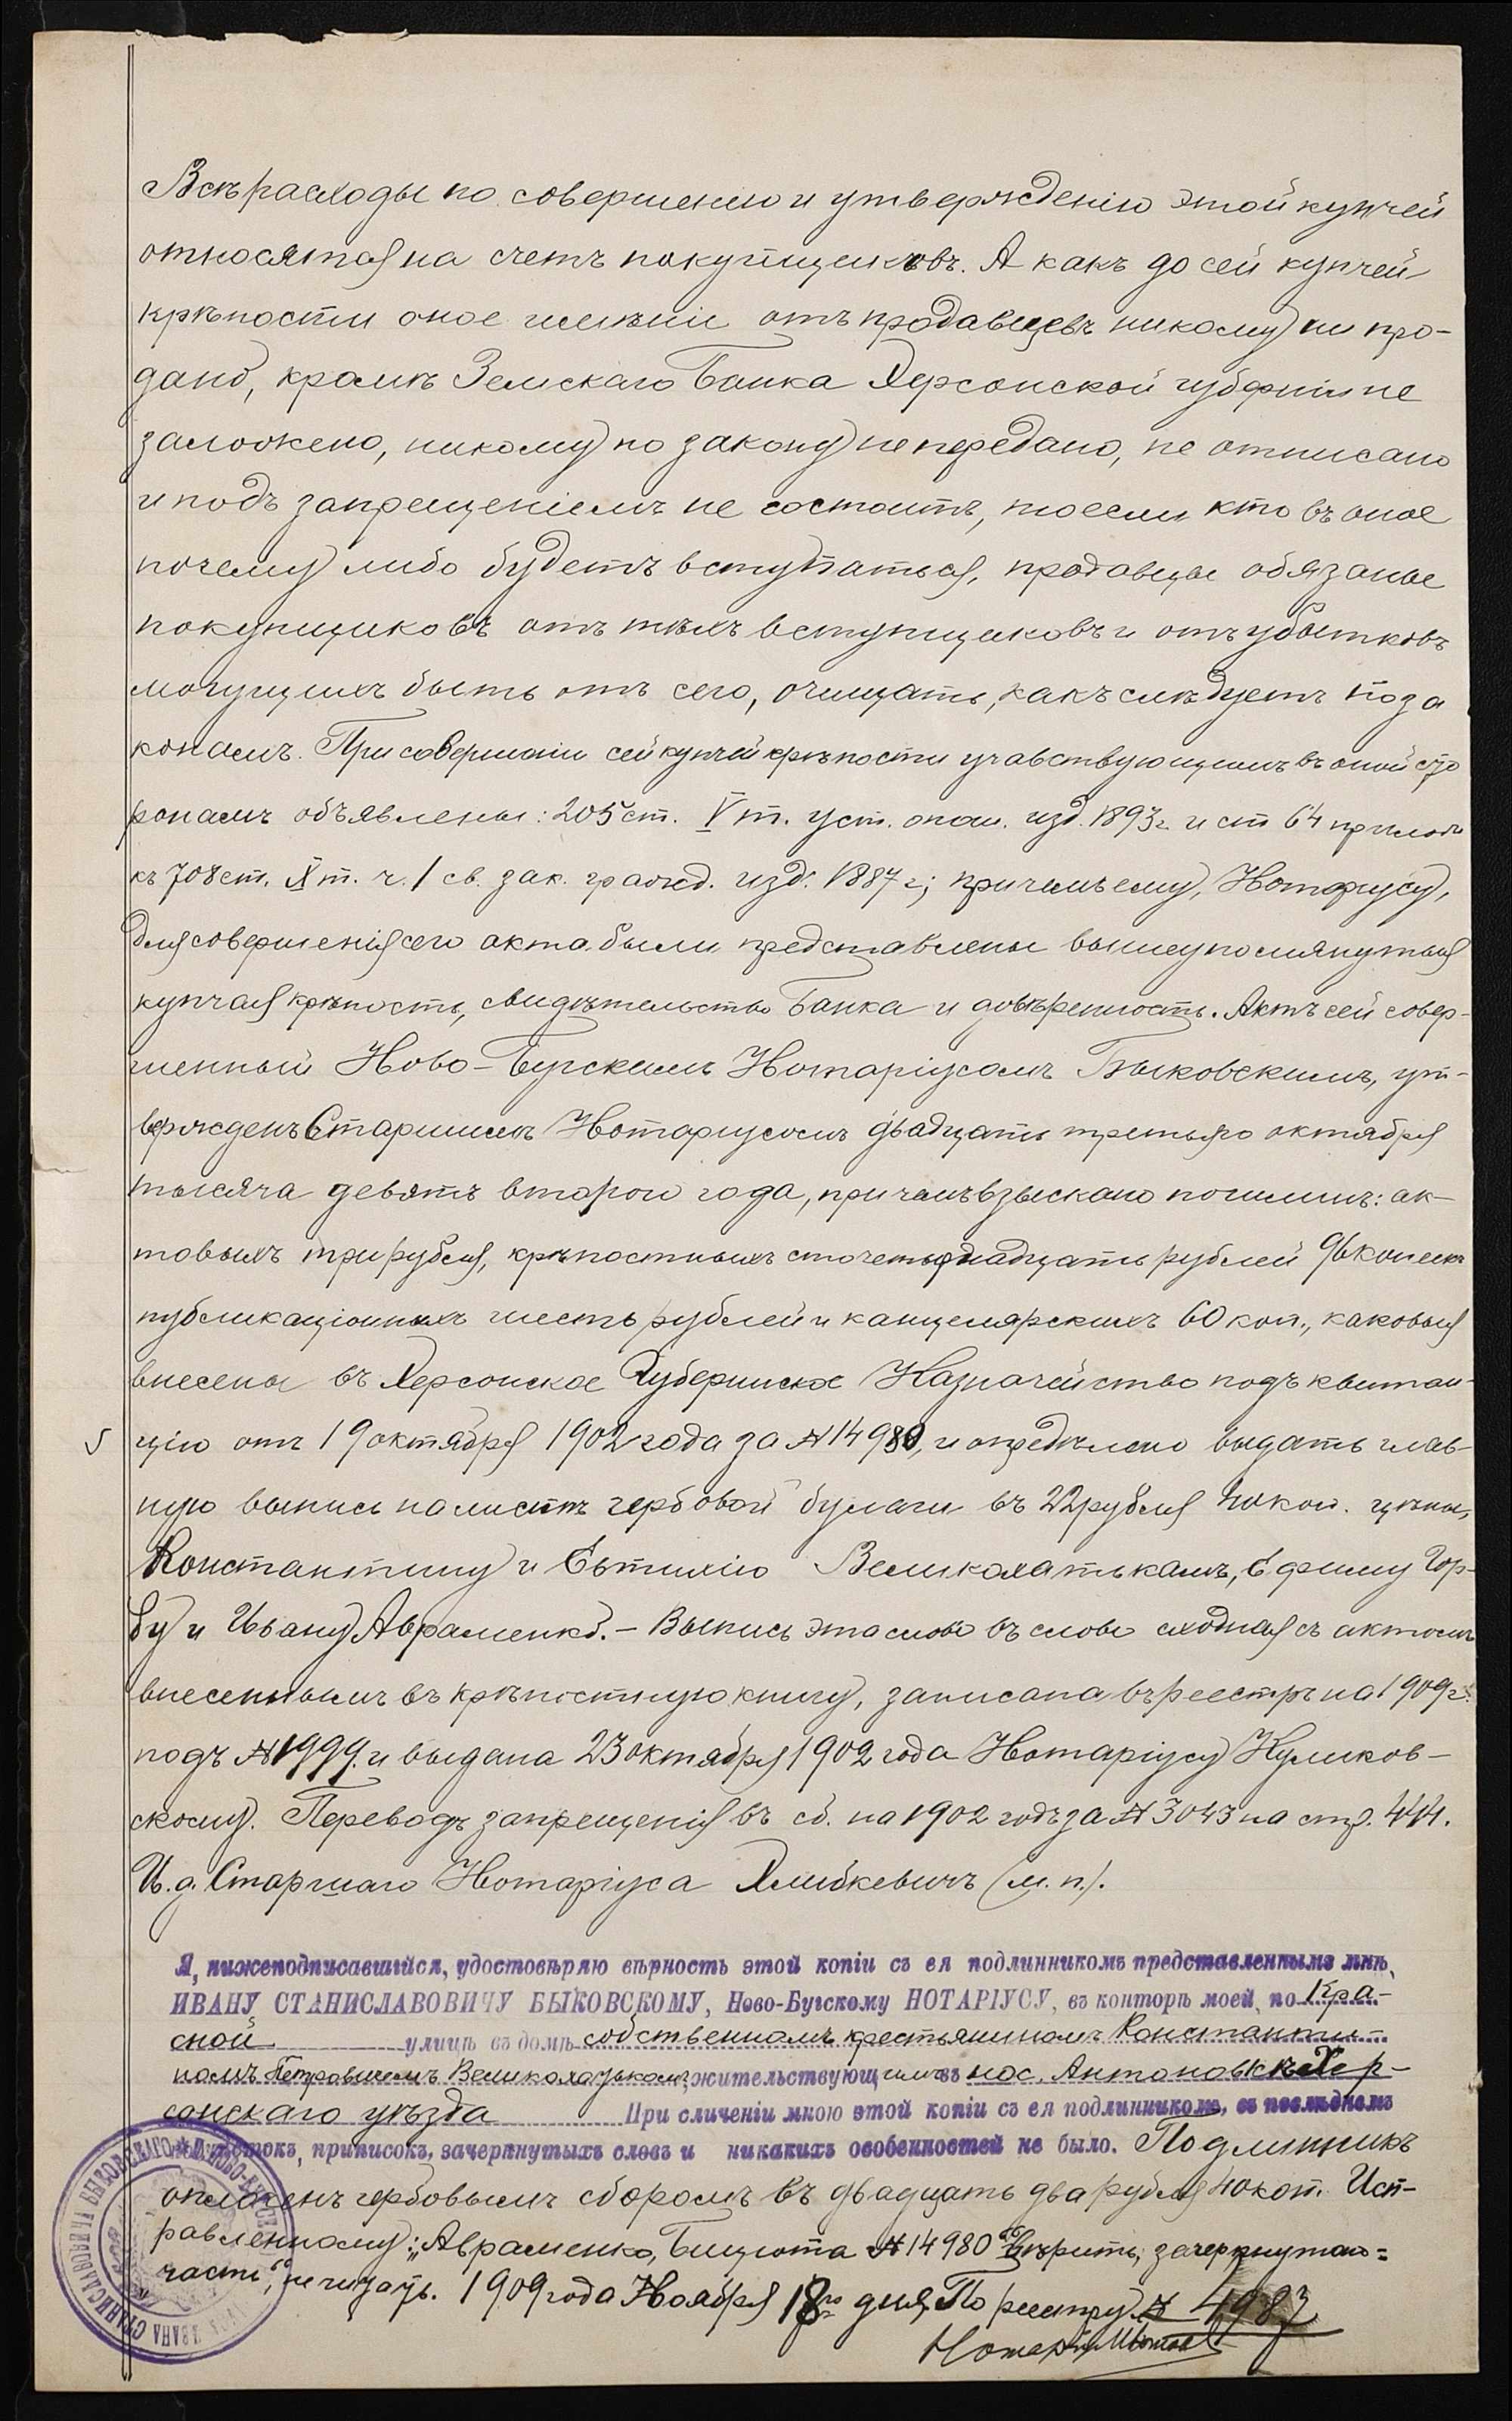 Всѣ расходы по совершенію и утвержденію этой купчей
относятся на счетъ покупщиковъ. А какъ до сей купчей
крѣпости оное имѣніе отъ продавцевъ никому ни про-
дано, кромѣ Земскаго Банка Херсонской губерніи не
заложено, никому по закону не передано, не отписано
и подъ запрещеніемъ не состоитъ, то если кто въ оное
почему либо будетъ вступаться, продавцы обязаны
покупщиковъ отъ тѣхъ вступщиковъ и отъ убытковъ
могущихъ быть отъ сего, очищать, какъ слѣдуетъ по за
конамъ. При совершеніи сей купчей крѣпости учавствующимъ въ оной сто
ронамъ объявлены: 205 ст. V т. уст. опош. изд. 1893 г. и ст 64 прилож
къ 708 ст. X т. ч. 1 св. зак. гражд. изд. 1887 г; причемъ ему, Нотаріусу,
для совершенія сего акта были представлены вышеупомянутыя
купчая крѣпость, свидѣтельство Банка и довѣренность. Актъ сей совер-
шенный Ново-Бугскимъ Нотаріусомъ Быковскимъ, ут-
вержденъ Старшимъ Нотаріусомъ двадцать третьяго октября
тысяча девятъ второго года, причемъ взыскано пошлинъ: ак-
товыхъ три рубля, крѣпостныхъ сто четырнадцать рублей 96 копѣекъ
публикаціонныхъ шесть рублей и канцелярскихъ 60 коп., каковыя
внесены въ Херсонское Губернское Казначейство подъ квитан-
цію отъ 19 октября 1902 года за № 14980, и опредѣлено выдать глав-
ную выпись на листѣ гербовой бумаги въ 22 рубля 40 коп. цѣны,
Константину и Евтихію Великохатькамъ, Ефиму Гор-
бу и Ивану Авраменко. - Выпись эта слово въ слово сходная съ актомъ
внесеннымъ въ крѣпостную книгу, записана въ реестръ на 1902 г.
подъ № 1999. и выдана 23 октября 1902 года Нотаріусу Куликов-
скому. Переводъ запрещенія въ сб. на 1902 годъ за № 3043 на стр. 444.
И. д. Старшаго Нотаріуса Хлибкевичъ (м. п.).
Я, нижеподписавшійся, удостовѣряю вѣрность этой копіи съ ея подлинникомъ представленнымъ мнѣ,
ИВАНУ СТАНИСЛАВОВИЧУ БЫКОВСКОМУ, Ново-Бугскому НОТАРІУСУ, въ конторѣ моей, по Кра-
сной улицѣ въ домѣ собственномъ крестьяниномъ Константи-
номъ Петровичемъ Великохатькомъ, жительствующимъ въ пос. Антоновкѣ Хер-
сонскаго уѣзда При сличеніи мною этой копіи съ ея подлинникомъ, въ послѣднемъ
почистокъ, приписокъ, зачеркнутыхъ словъ и никакихъ особенностей не было. Подлинникъ
оплаченъ гербовымъ сборомъ въ двадцать два рубля 40 коп. Исп-
равленному: "Авраменко, № 14980" вѣрить, зачеркнутаго=
"части", не читать. 1909 года Ноября 18го дня По реестру № 4987
Нотаріусъ